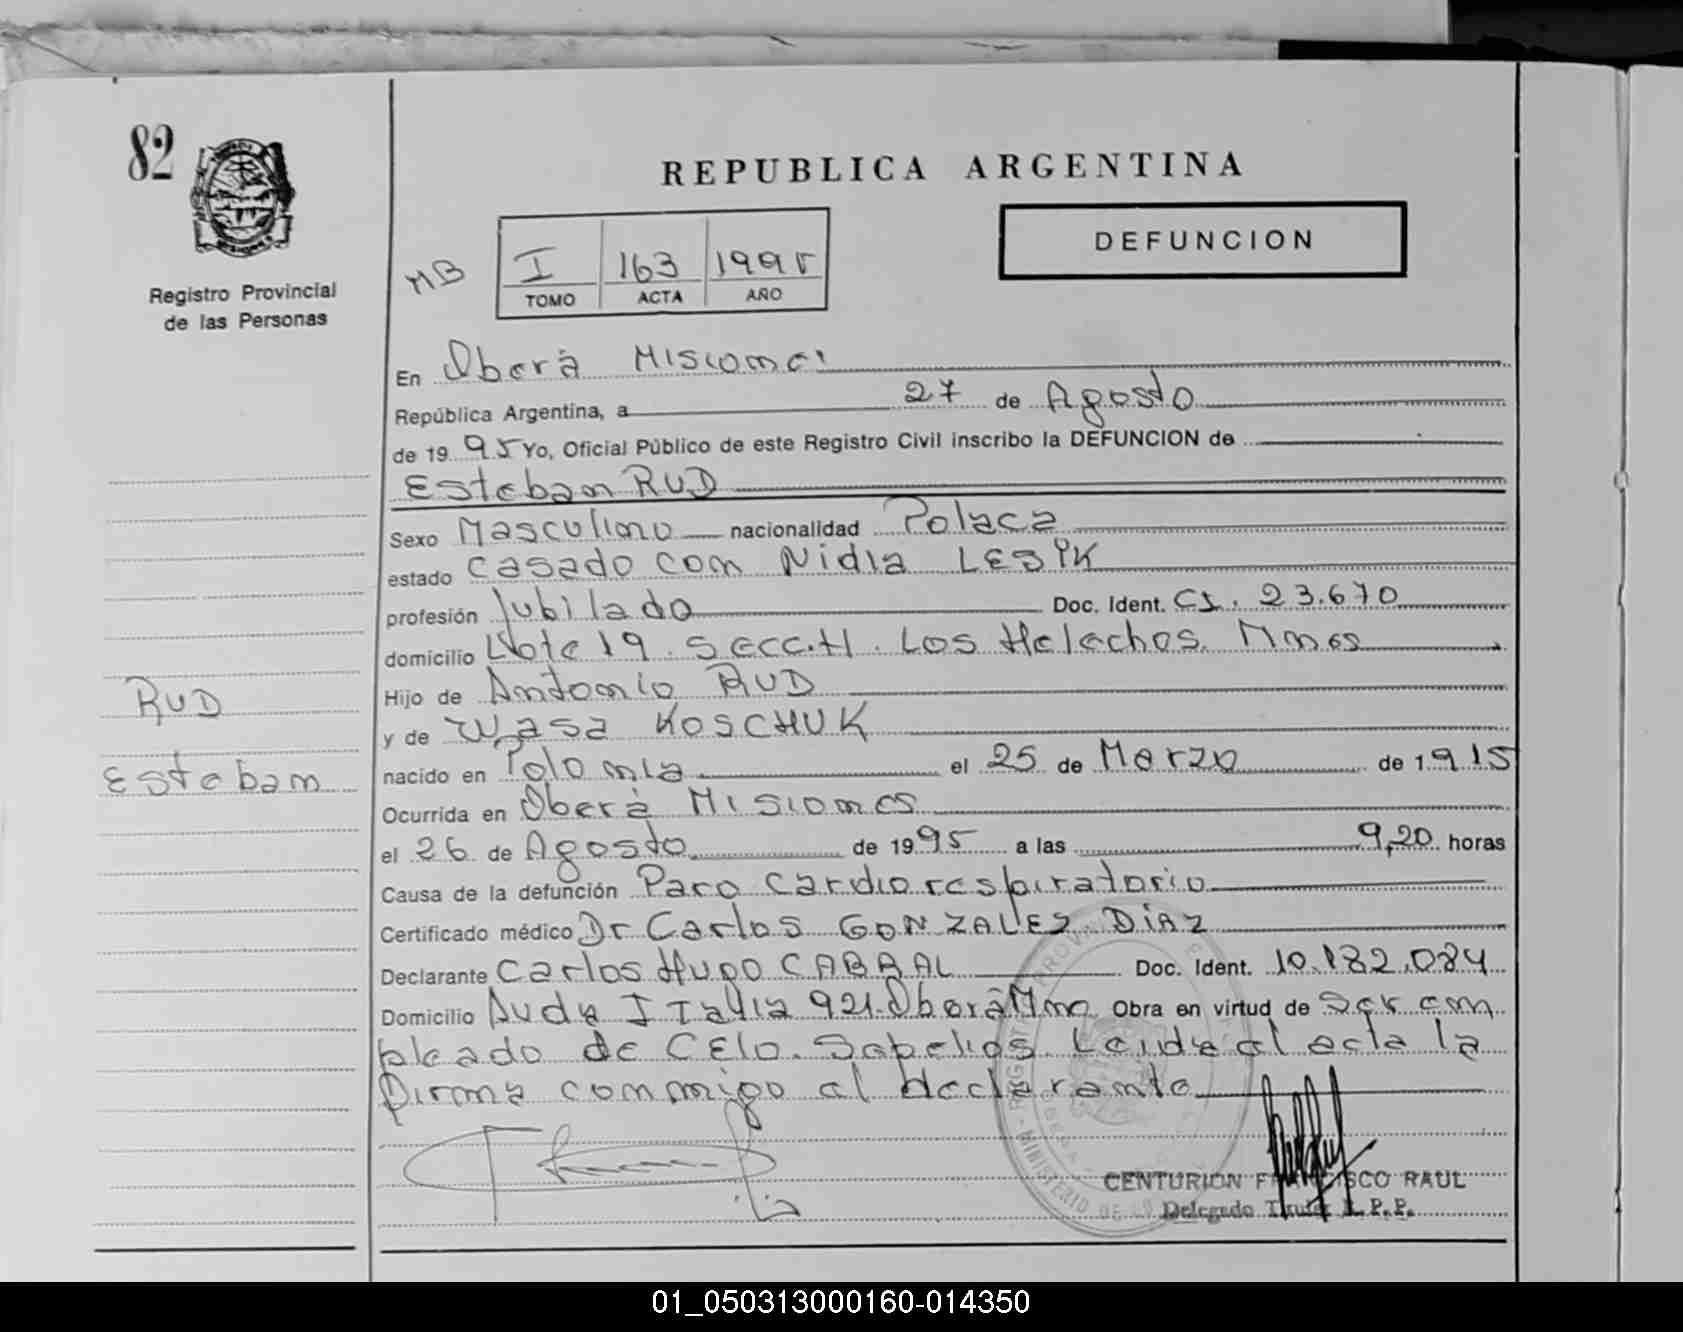 82
REPUBLICA ARGENTINA
DEFUNCION
Registro Provincial
de las Personas
MB
I 163 1995
TOMO ACTA AÑO
En Oberá Misiones
República Argentina, a 27 de Agosto
de 1995 Yo, Oficial Público de este Registro Civil inscribo la DEFUNCION de
Esteban RUD
Sexo Masculino nacionalidad Polaca
estado casado con Nidia LESYK
profesión Jubilado Doc. Ident. CI. 23.670
domicilio Lote 19. Secc.H. Los Helechos. Mnes
RUD
Hijo de Antonio RUD
y de Wasa KOSCHUK
Esteban
nacido en Polonia el 25 de Marzo de 1915
Ocurrida en Oberá Misiones
el 26 de Agosto de 1995 a las 9,20 horas
Causa de la defunción Paro cardiorespiratorio
Certificado médico Dr Carlos GONZALEZ DIAZ
Declarante Carlos Hugo CABRAL Doc. Ident. 10.182.084
Domicilio Avda Italia 921. Oberá Mnes Obra en virtud de Ser em
pleado de CELO. Sepelios. Leida el acta la
firma conmigo el declarante
CENTURION FRANCISCO RAUL
Delegado Titular R.P.P.
01_050313000160-014350